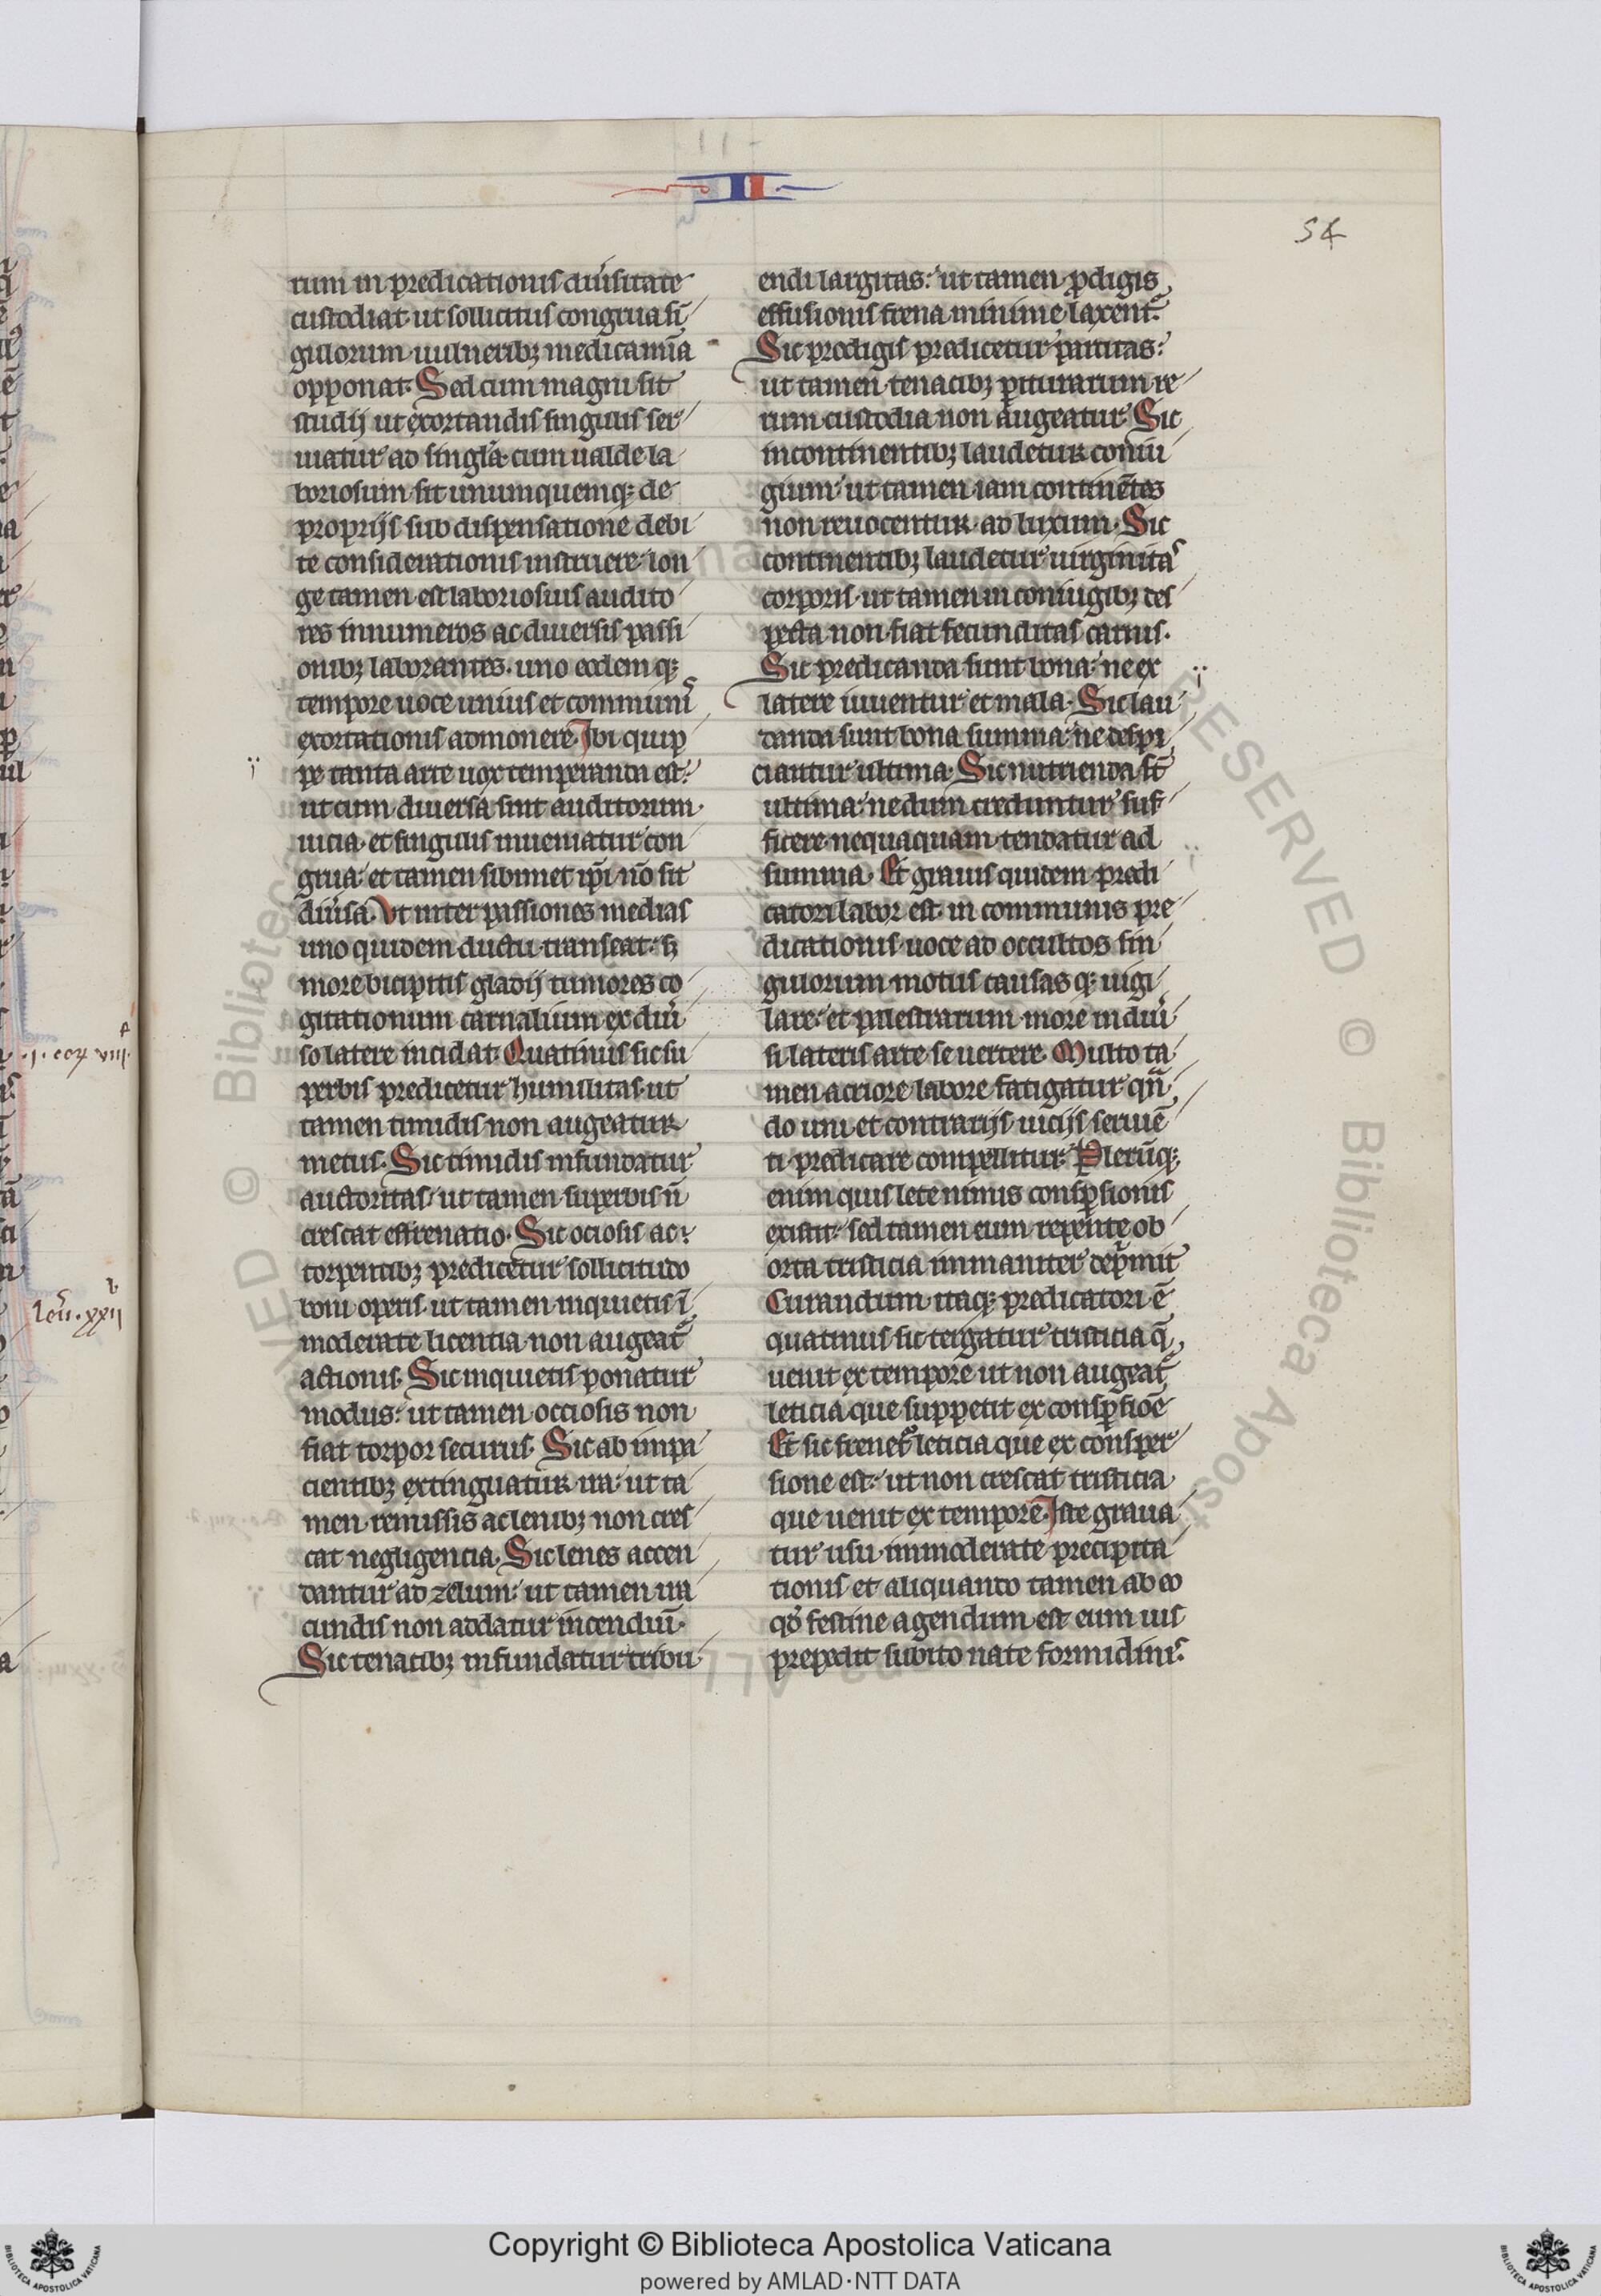 II
54
tum in predicationis diũsitate
custodiat ut sollicitus congrua sĩ
gulorum uulneribꝫ medicamĩa
opponat. Sed cum magni sit
studij ut exortandis singulis ser
uiatur ad singĺa. cum ualde la
boriosum sit unumquemqꝫ de
proprijs sub dispensatione debi
te considerationis instruere. lon
ge tamen est laboriosius audito
res innumeros ac diuersis passi
onibꝫ laborantes. uno eodemqꝫ
tempore uoce unius et communis
exortationis admonere. Ibi quip
pe tanta arte uox temperanda est:
ut cum diuersa sint auditorum
uicia. et singulis inueniatur con
grua: et tamen sibimet ip̃i nõ sit
diũsa. Vt inter passiones medias
uno quidem ductu transeat: sꝫ
more bicipitis gladij tumores co
gitationum carnalium ex diũ
so latere incidat. Quatinus sic su
perbis predicetur humilitas. ut
tamen timidis non augeatur
metus. Sic timidis infundatur
auctoritas. ut tamen superbis ñ
crescat effrenatio. Sic ociosis ac
torpentibꝫ predicetur sollicitudo
boni operis. ut tamen inquietis ĩ
moderate licentia non augeat᷑
actionis. Sic inquietis ponatur
modus: ut tamen occiosis non
fiat torpor securus. Sic ab inpa
cientibꝫ extinguatur ira: ut ta
men remissis ac lenibꝫ non cres
cat negligencia. Sic lenes accen
dantur ad zelum: ut tamen ira
cundis non addatur incendiũ.
Sic tenacibꝫ infundatur tribu
endi largitas: ut tamen ꝓdigis
effusionis frena minime laxent᷑.
Sic prodigis predicetur parcitas:
ut tamen tenacibꝫ ꝑiturarum re
rum custodia non augeatur. Sic
incontinentibꝫ laudetur coniu
gium. ut tamen iam continẽtes
non reuocentur ad luxum. Sic
continentibꝫ laudetur uirginitas
corporis. ut tamen in coniugibꝫ des
pecta non fiat fecunditas carnis.
Sic predicanda sunt bona: ne ex
latere iuuentur et mala. Sic lau
danda sunt bona summa: ne despi
ciantur ultima. Sic nutrienda st̃
ultima: ne dum creduntur suf
ficere. nequaquam tendatur ad
summa. Et grauis quidem predi
catori labor est. in communis pre
dicationis uoce ad occultos sin
gulorum motus causasqꝫ uigi
lare: et palestrarum more in diũ
si lateris arte se uertere. Multo ta
men acriore labore fatigatur qñ
do uni et contrarijs uicijs seruiẽ
ti predicare compellitur. Plerũqꝫ
enim quis lete nimis conspersionis
existit: sed tamen eum repente ob
orta tristicia immaniter dep̃mit
Curandum itaqꝫ predicatori ẽ
quatinus sic tergatur tristicia q̃
uenit ex tempore ut non augeat᷑
leticia que suppetit ex consꝑsiõe
Et sic frenet᷑ leticia que ex consper
sione est: ut non crescat tristicia
que uenit ex tempore. Iste graua
tur usu immoderate precipita
tionis et aliquando tamen ab eo
qđ festine agendum est eum uis
prepedit subito nate formidinis.
.I. cor VIII.
leũ. XXII
b
Copyright © Biblioteca Apostolica Vaticana
powered by AMLAD·NTT DATA